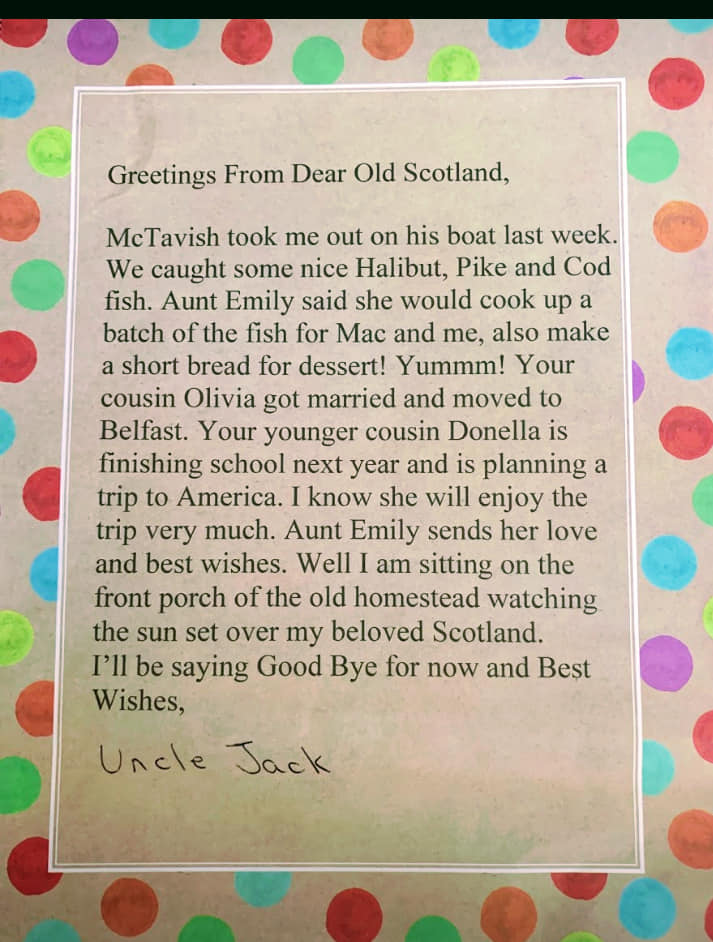 Greetings From Dear Old Scotland,
McTavish took me out on his boat last week.
We caught some nice Halibut, Pike and Cod
fish. Aunt Emily said she would cook up a
batch of the fish for Mac and me, also make
a short bread for dessert! Yummm! Your
cousin Olivia got married and moved to
Belfast. Your younger cousin Donella is
finishing school next year and is planning a
trip to America. I know she will enjoy the
trip very much. Aunt Emily sends her love
and best wishes. Well I am sitting on the
front porch of the old homestead watching
the sun set over my beloved Scotland.
I’ll be saying Good Bye for now and Best
Wishes,
Uncle Jack